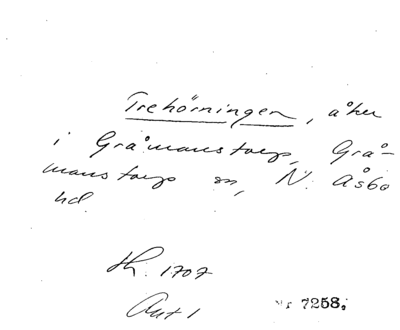 Trehörningen, åker
i Gråmanstorp, Grå-
manstorps sn, N. Åsbo
hd.
th. 1707
Akt 1
Nr 7258.